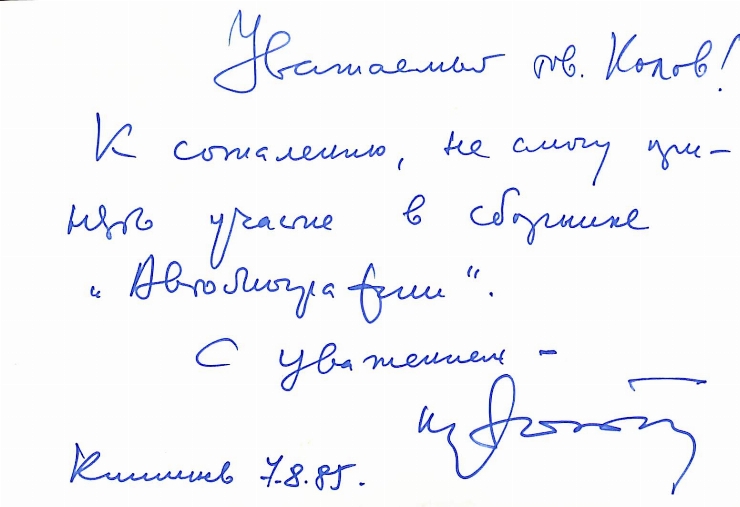 Уважаемый тов. Копов!
К сожалению, не смогу при-
нять участие в сборнике
„Автобиографии“.
С уважением –
Кишинев 7.8.85.